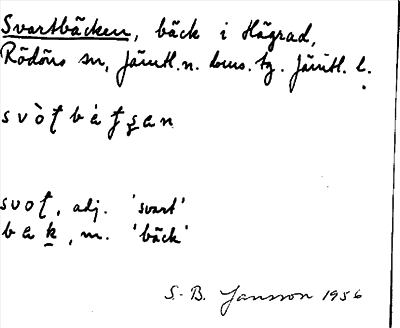 Svartbäcken, bäck i Högrad,
Rödöns sn, Jämtl. n. doms. tg. Jämtl. l.
svot, adj. 'svart'
bak, m. 'bäck'
S.-B. Jansson 1956